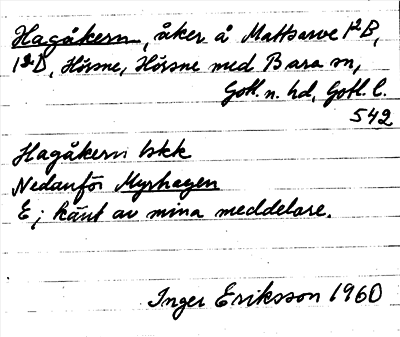 Hagåkern, åker å Mattsarve 1²B,
1²D, Hörsne, Hörsne med Bara sn,
Gotl. n. hd, Gotl. l.
542
Hagåkern lskk
Nedanför Myrhagen
Ej känt av mina meddelare.
Inger Eriksson 1960